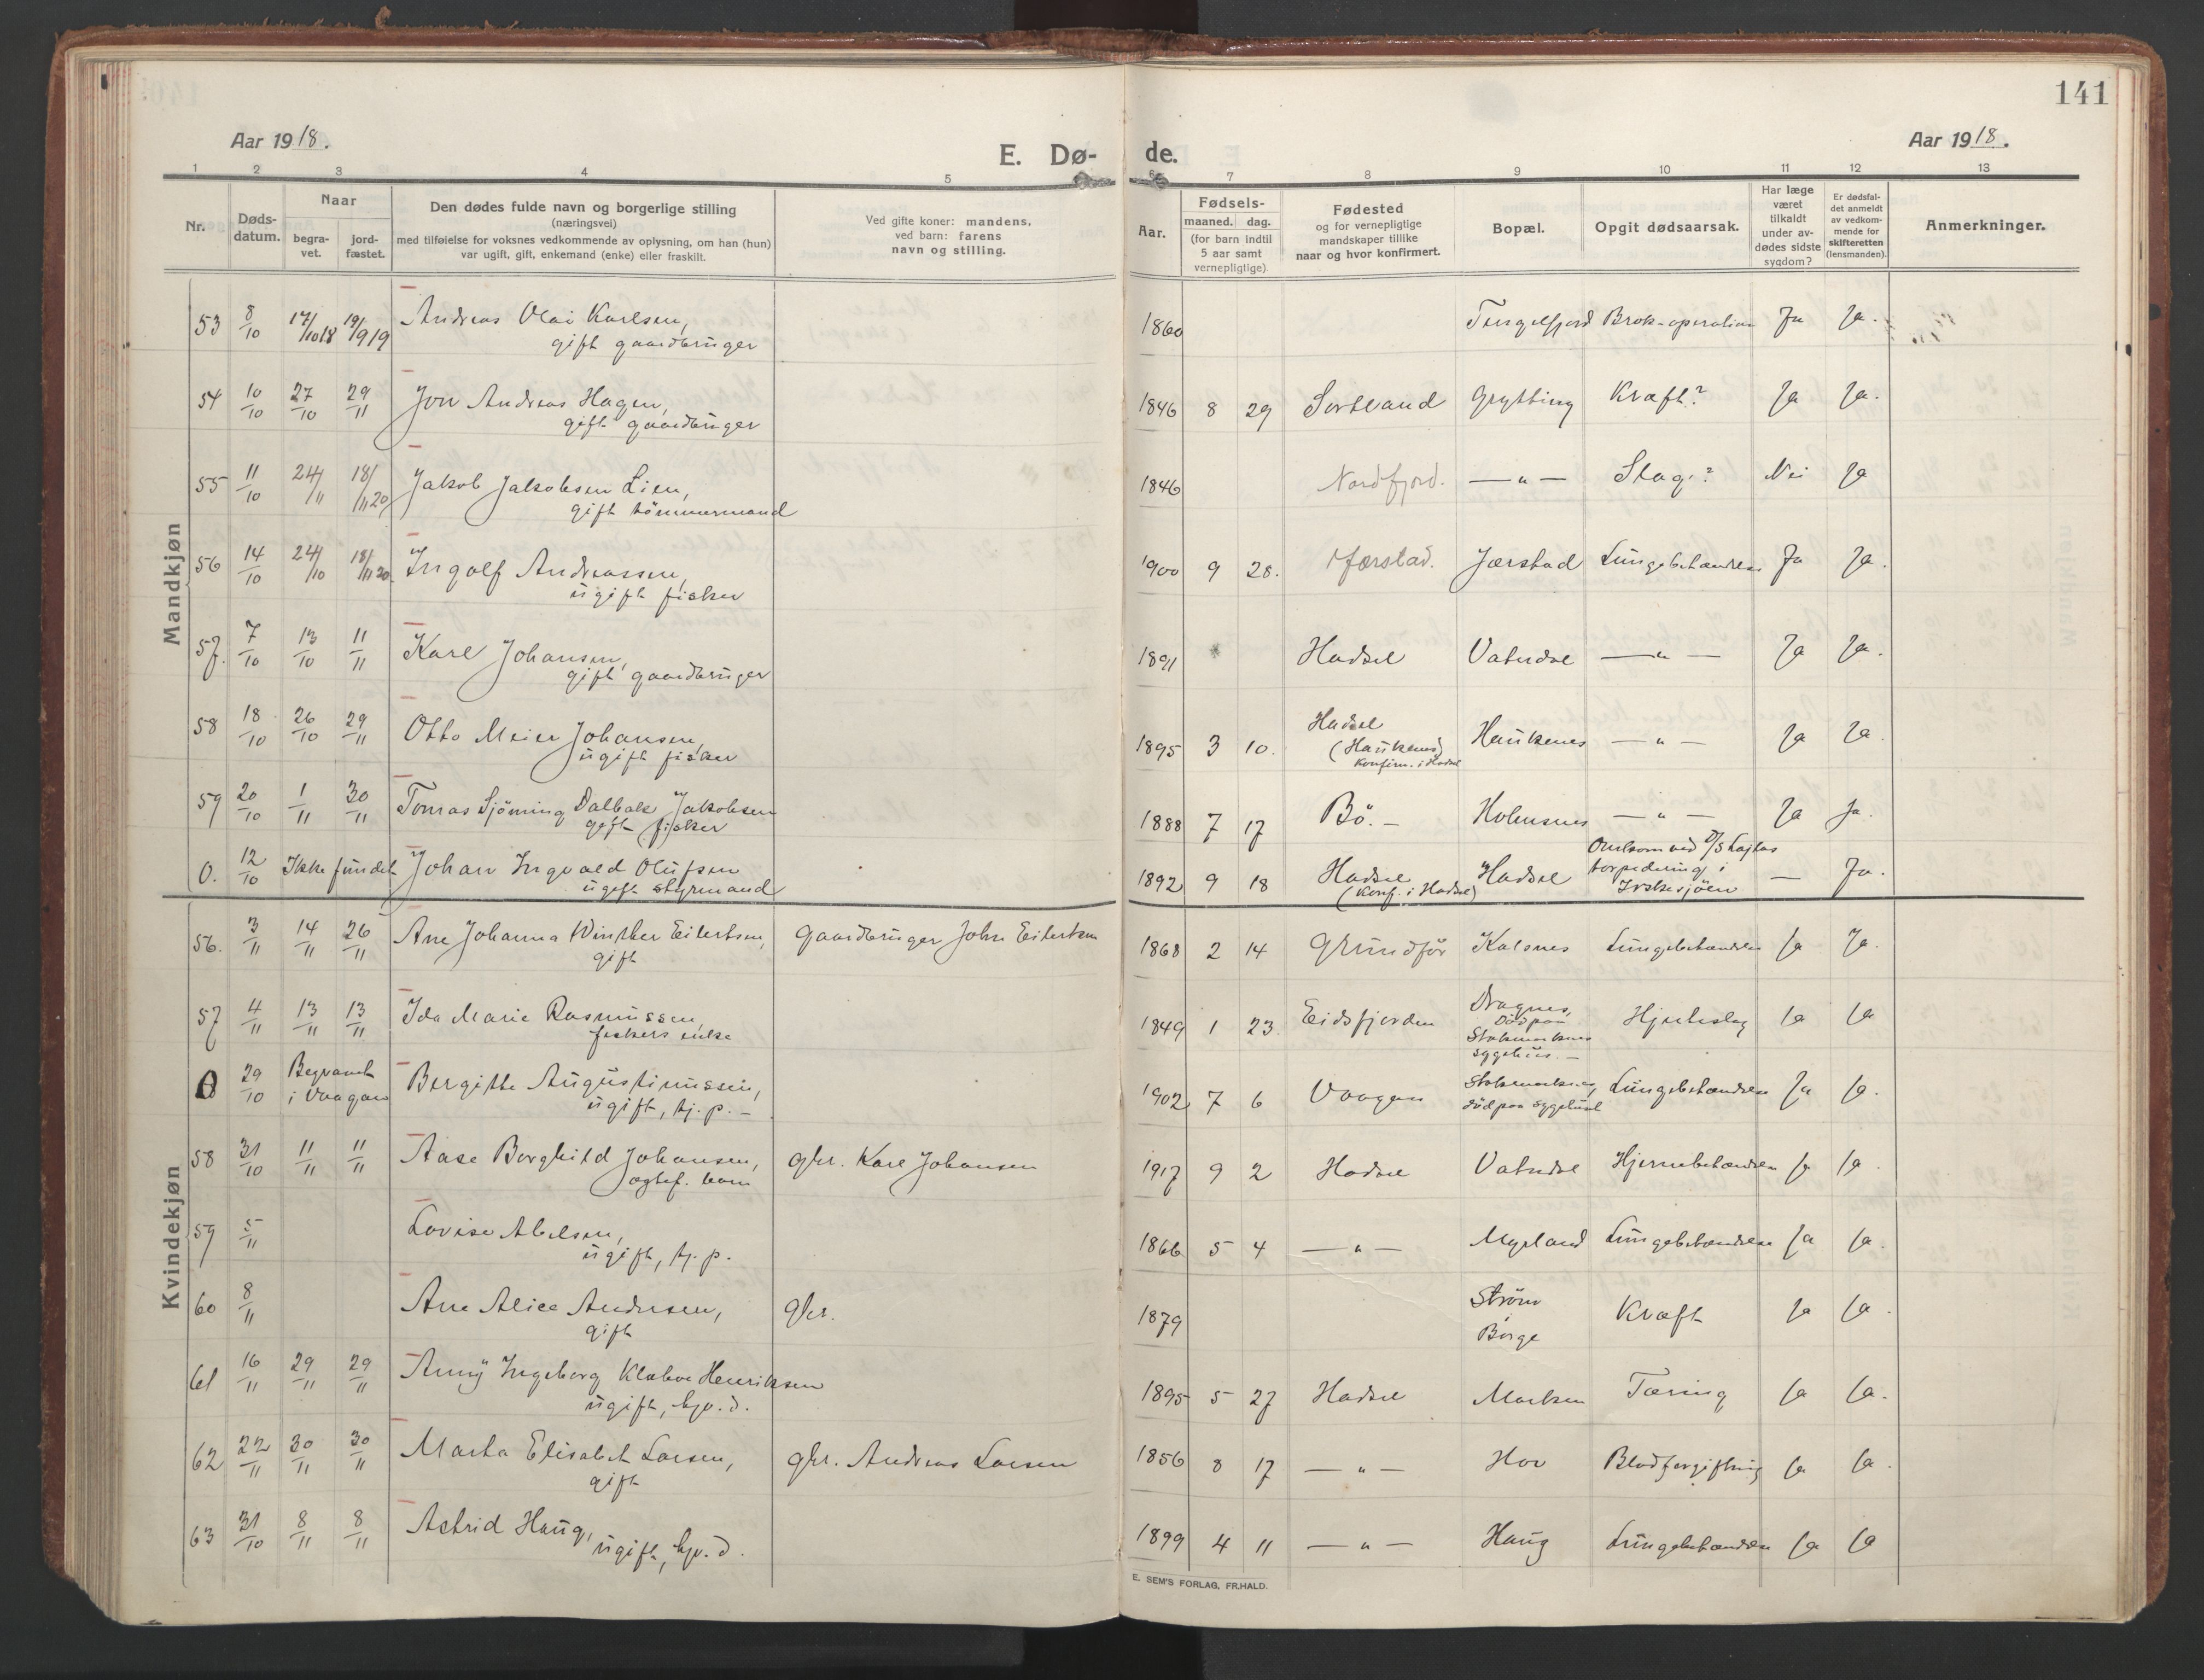 141
Aar 1918.
Aar 1918.
E. Dø- de.
1 2 3 4 5 6 7 8 9 10 11 12 13
Nr.
Døds-
datum.
Naar
begra-
vet.
jord-
fæstet.
Den dødes fulde navn og borgerlige stilling
(næringsvei)
med tilføielse for voksnes vedkommende av oplysning, om han (hun)
var ugift, gift, enkemand (enke) eller fraskilt.
Ved gifte koner: mandens,
ved barn: farens
navn og stilling.
Aar.
Fødsels-
maaned. dag.
(for barn indtil
5 aar samt
vernepligtige)
Fødested
og for vernepligtige
mandskaper tillike
naar og hvor konfirmert.
Bopæl.
Opgit dødsaarsak.
Har læge
været
tilkaldt
under av-
dødes sidste
sygdom?
Er dødsfal-
det anmeldt
av vedkom-
mende for
skifteretten
(lensmanden).
Anmerkninger.
Mandkjøn
53 8/10 17/10 18 19/9 19 Andreas Olai Karlsen, 1860 Tengelfjord Brok-operation Ja Ja.
gift gaardbruger
54 10/10 27/10 29/11 Jon Andreas Hagen, 1846 8 29 Sortland Grytting Kræft? Ja Ja.
gift gaardbruger
55 11/10 24/11 18/11 20 Jakob Jakobsen Lien, 1846 Nordfjord. — " — Slag? Nei Ja
gift tømmermand
56 14/10 24/10 18/11 20. Ingolf Andreassen, 1900 9 28. Jærstad. Jærstad Lungebetændelse Ja Ja.
ugift fisker
57. 7/10 13/10 11/11 Karl Johansen, 1891 Hadsel Vatndal — " — Ja Ja.
gift gaardbruger
58 18/10 26/10 29/11 Otto Meier Johansen, 1895 3 10. Hadsel Haukenes — " — Ja Ja.
ugift fisker (Haukenes)
Konfirm. i Hadsel
59 20/10 1/11 30/11 Tomas Sjöning Dalbak Jakobsen 1888 7 17 Bö. — Holmsnes — " — Ja Ja.
gift fisker
0. 12/10 Ikke fundet Johan Ingvald Olufsen 1892 9 18 Hadsel Hadsel Omkom ved D/S — Ja.
ugift styrmand (Konf. i Hadsel) torpedering i
Irskesjöen
Kvindekjøn
56. 3/11 14/11 26/11 Ane Johanna Winther Eilertsen, Gaardbruger John Eilertsen 1868 2 14 Grundfør Kalsnes Lungebetændelse Ja Ja.
gift
57 4/11 13/11 13/11 Ida Marie Rasmussen, 1849 1 23. Eidsfjorden Dragnes, Hjerteslag Ja Ja
fiskers enke Död paa
Stokmarknes
sygehus. —
0 29/10 Begravet Bergitte Augustinussen, 1902 7 6 Vaagan Stokmarknes, Lungebetændelse Ja Ja.
i Vaagan ugift, tj. p. — död paa sygehuset
58 31/10 11/11 11/11 Aase Borghild Johansen, gbr. Karl Johansen 1917 9 2 Hadsel Vatndal Hjernebetændelse Ja Ja.
ægtef. barn
59 5/11 Lovise Abelsen, 1866 5 4 — " — Myrland Lungebetændelse Ja Ja.
ugift, tj. p.
60 8/11 Ane Alice Andersen, gbr. 1879 Ström Kræft Ja Ja.
gift Börge
61 16/11 29/11 29/11 Anny Ingeborg Henriksen 1895 5 27 Hadsel Marken Tæring Ja Ja.
ugift, hjv. d.
62 22/11 30/11 30/11 Marta Elisabet Larsen, gbr. Andreas Larsen 1856 8 17 — " — Hov Blodforgiftning Ja Ja.
gift
63 31/10 8/11 8/11 Astrid Haug, 1899 4 11 — " — Haug Lungebetændelse Ja Ja
ugift, hjv. d.
E. SEM'S FORLAG, FR.HALD.